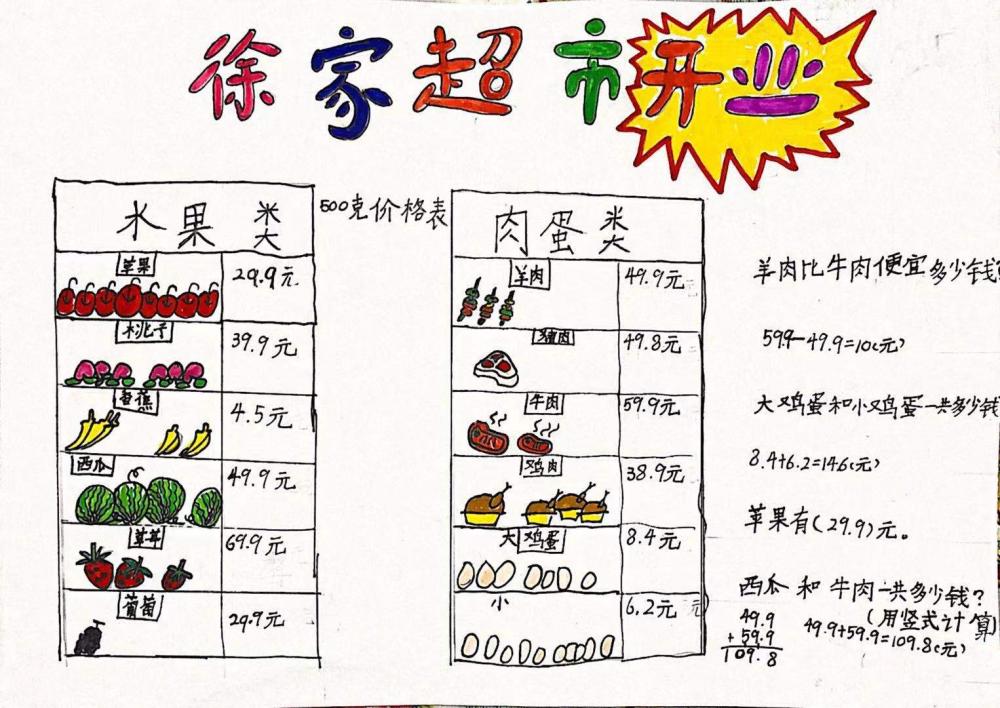 徐家超市开业
500克价格表
水果类
苹果 29.9元
桃子 39.9元
香蕉 4.5元
西瓜 49.9元
草莓 69.9元
葡萄 29.9元
肉蛋类
羊肉 49.9元
猪肉 49.8元
牛肉 59.9元
鸡肉 38.9元
大鸡蛋 8.4元
小 6.2元
羊肉比牛肉便宜多少钱?
59.9-49.9=10(元)
大鸡蛋和小鸡蛋一共多少钱
8.4+6.2=14.6(元)
苹果有(29.9)元。
西瓜和牛肉一共多少钱?
(用竖式计算)
49.9
+59.9
109.8
49.9+59.9=109.8(元)